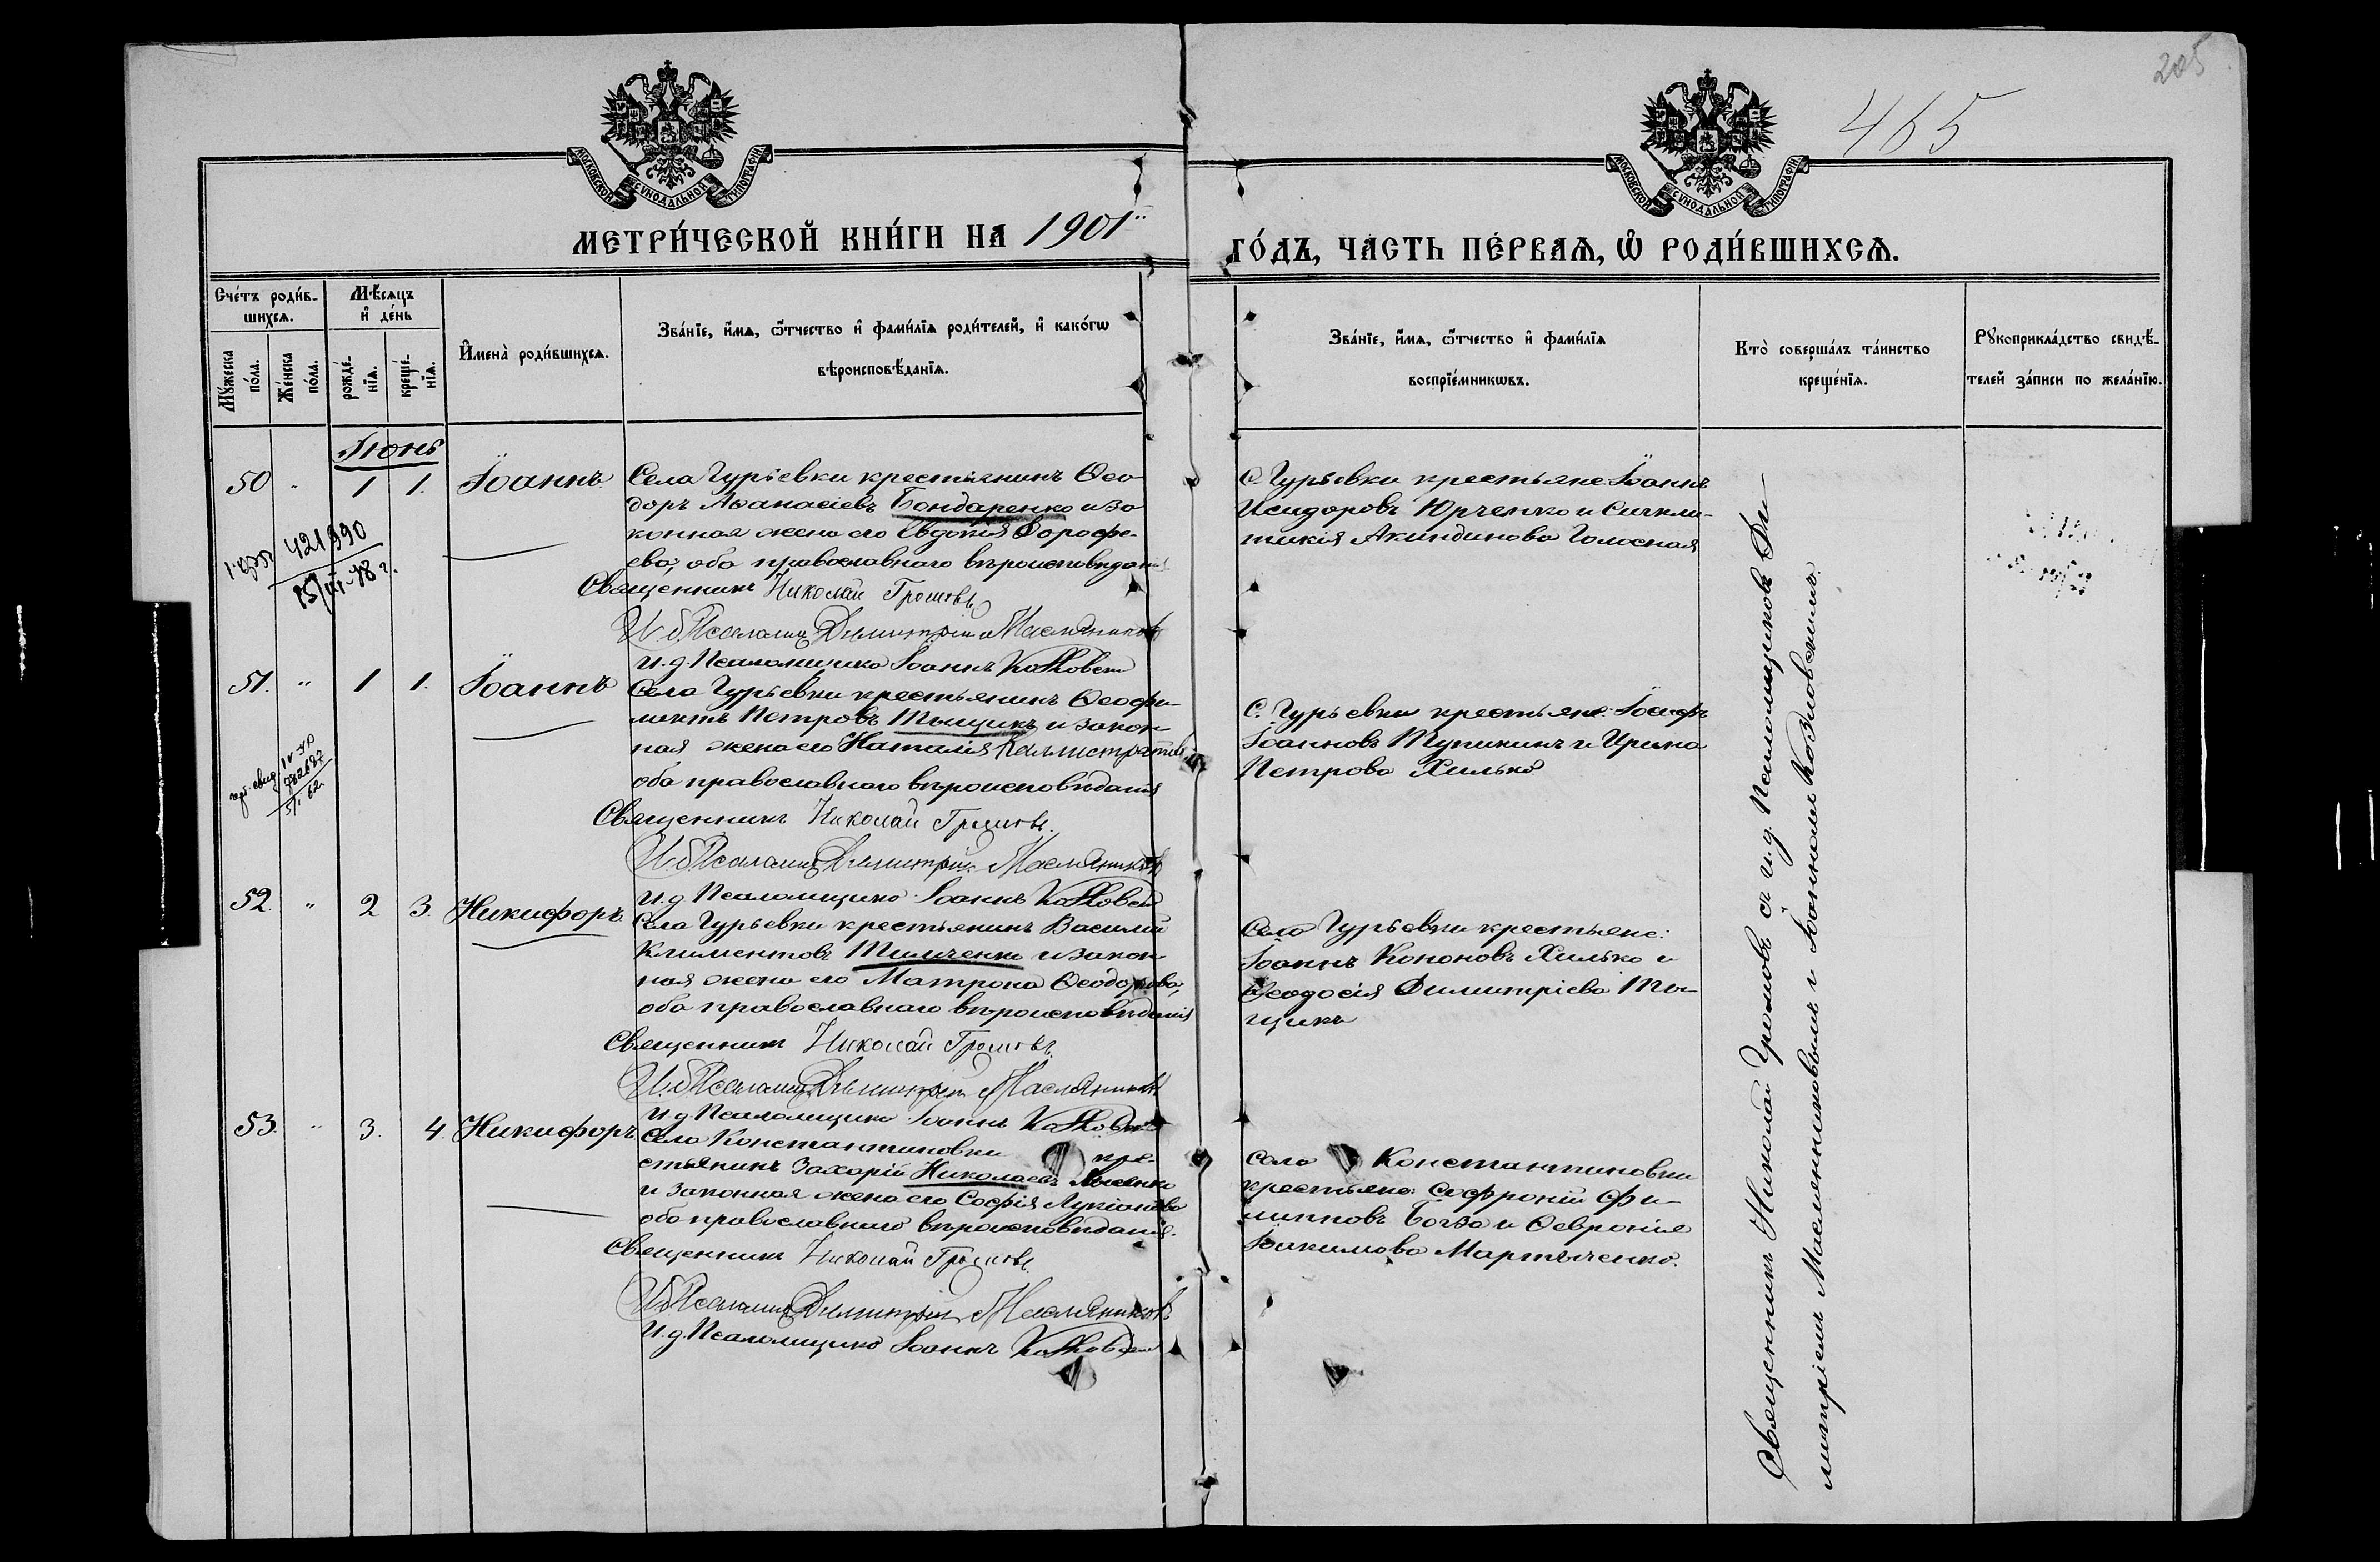 205
465
МОСКОВСКОЙ СѴНОДАЛЬНОЙ ТИПОГРАФІИ
МОСКОВСКОЙ СѴНОДАЛЬНОЙ ТИПОГРАФІИ
МЕТРИ́ЧЕСКОЙ КНИ́ГИ НА 1901
ГО́ДЪ, ЧА́СТЬ ПЕ́РВАѦ, Ѽ РОДИ́ВШИХСѦ.
Сче́тъ роди́в-
шихсѧ.
Мꙋ́жеска по́ла.
Же́нска по́ла.
Мѣ́сѧцъ
и҆ де́нь
рожде́-нїѧ.
креще́-нїѧ.
И҆мена̀ роди́вшихсѧ.
Зва́нїе, и҆́мѧ, ѻ҆́тчество и҆ фами́лїѧ роди́телей, и҆ како́гѡ
вѣроисповѣ́данїѧ.
Зва́нїе, и҆́мѧ, ѻ҆́тчество и҆ фами́лїѧ
воспрїе́мникѡвъ.
Кто̀ соверша́лъ та́инство
креще́нїѧ.
Рꙋкоприкла́дство свидѣ́-
телей за́писи по жела́нїю.
Іюнь
50 " 1 1. Іоаннъ
Села Гурьевки крестьянинъ Ѳео-
доръ Аѳанасіевъ Бондаренко и за
конная жена его Евдокія Дорофе-
ева, оба православнаго вѣроисповѣданія
Священникъ Николай Громовъ
И. д. Псаломщ. Димитрій Масленниковъ
И. д. Псаломщика Іоаннъ
С. Гурьевки крестьяне: Іоаннъ
Исидоровъ Юрченко и Синкли-
тикія Акиндинова Голосная
421990
15/VI-78 г.
51. " 1 1. Іоаннъ
Села Гурьевки крестьянинъ Ѳеофи-
лактъ Петровъ Тыщикъ и закон-
ная жена его Наталія Каллистратова
оба православнаго вѣроисповѣданія
Священникъ Николай Громовъ.
И. д. Псаломщ. Димитрій Масленниковъ
И. д. Псаломщика Іоаннъ
С. Гурьевки крестьяне: Іосифъ
Іоанновъ Тупикинъ и Ирина
Петрова Хилько
свид.
62.
52. " 2 3. Никифоръ
Села Гурьевки крестьянинъ Василій
Климентовъ Тимченко и закон-
ная жена его Матрона Ѳеодорова,
оба православнаго вѣроисповѣданія
Священникъ Николай Громовъ.
И. д. Псаломщ. Димитрій Масленниковъ
И. д. Псаломщика Іоаннъ
Села Гурьевки крестьяне:
Іоаннъ Кононовъ Хилько и
Ѳеодосія Димитріева Ты-
щикъ
53. " 3. 4. Никифоръ
Села Константиновки кре-
стьянинъ Захарій Николаевъ
и законная жена его Софія Лукіанова
оба православнаго вѣроисповѣданія.
Священникъ Николай Громовъ.
И. д. Псаломщ. Димитрій Масленниковъ
И. д. Псаломщика Іоаннъ
Села Константиновки
крестьяне: Софроній Фи-
липповъ и Ѳевронія
Іоакимова Мартыненко.
Священникъ Николай Громовъ съ и. д. Псаломщиковъ Ди-
митріемъ Масленниковымъ и Іоанномъ